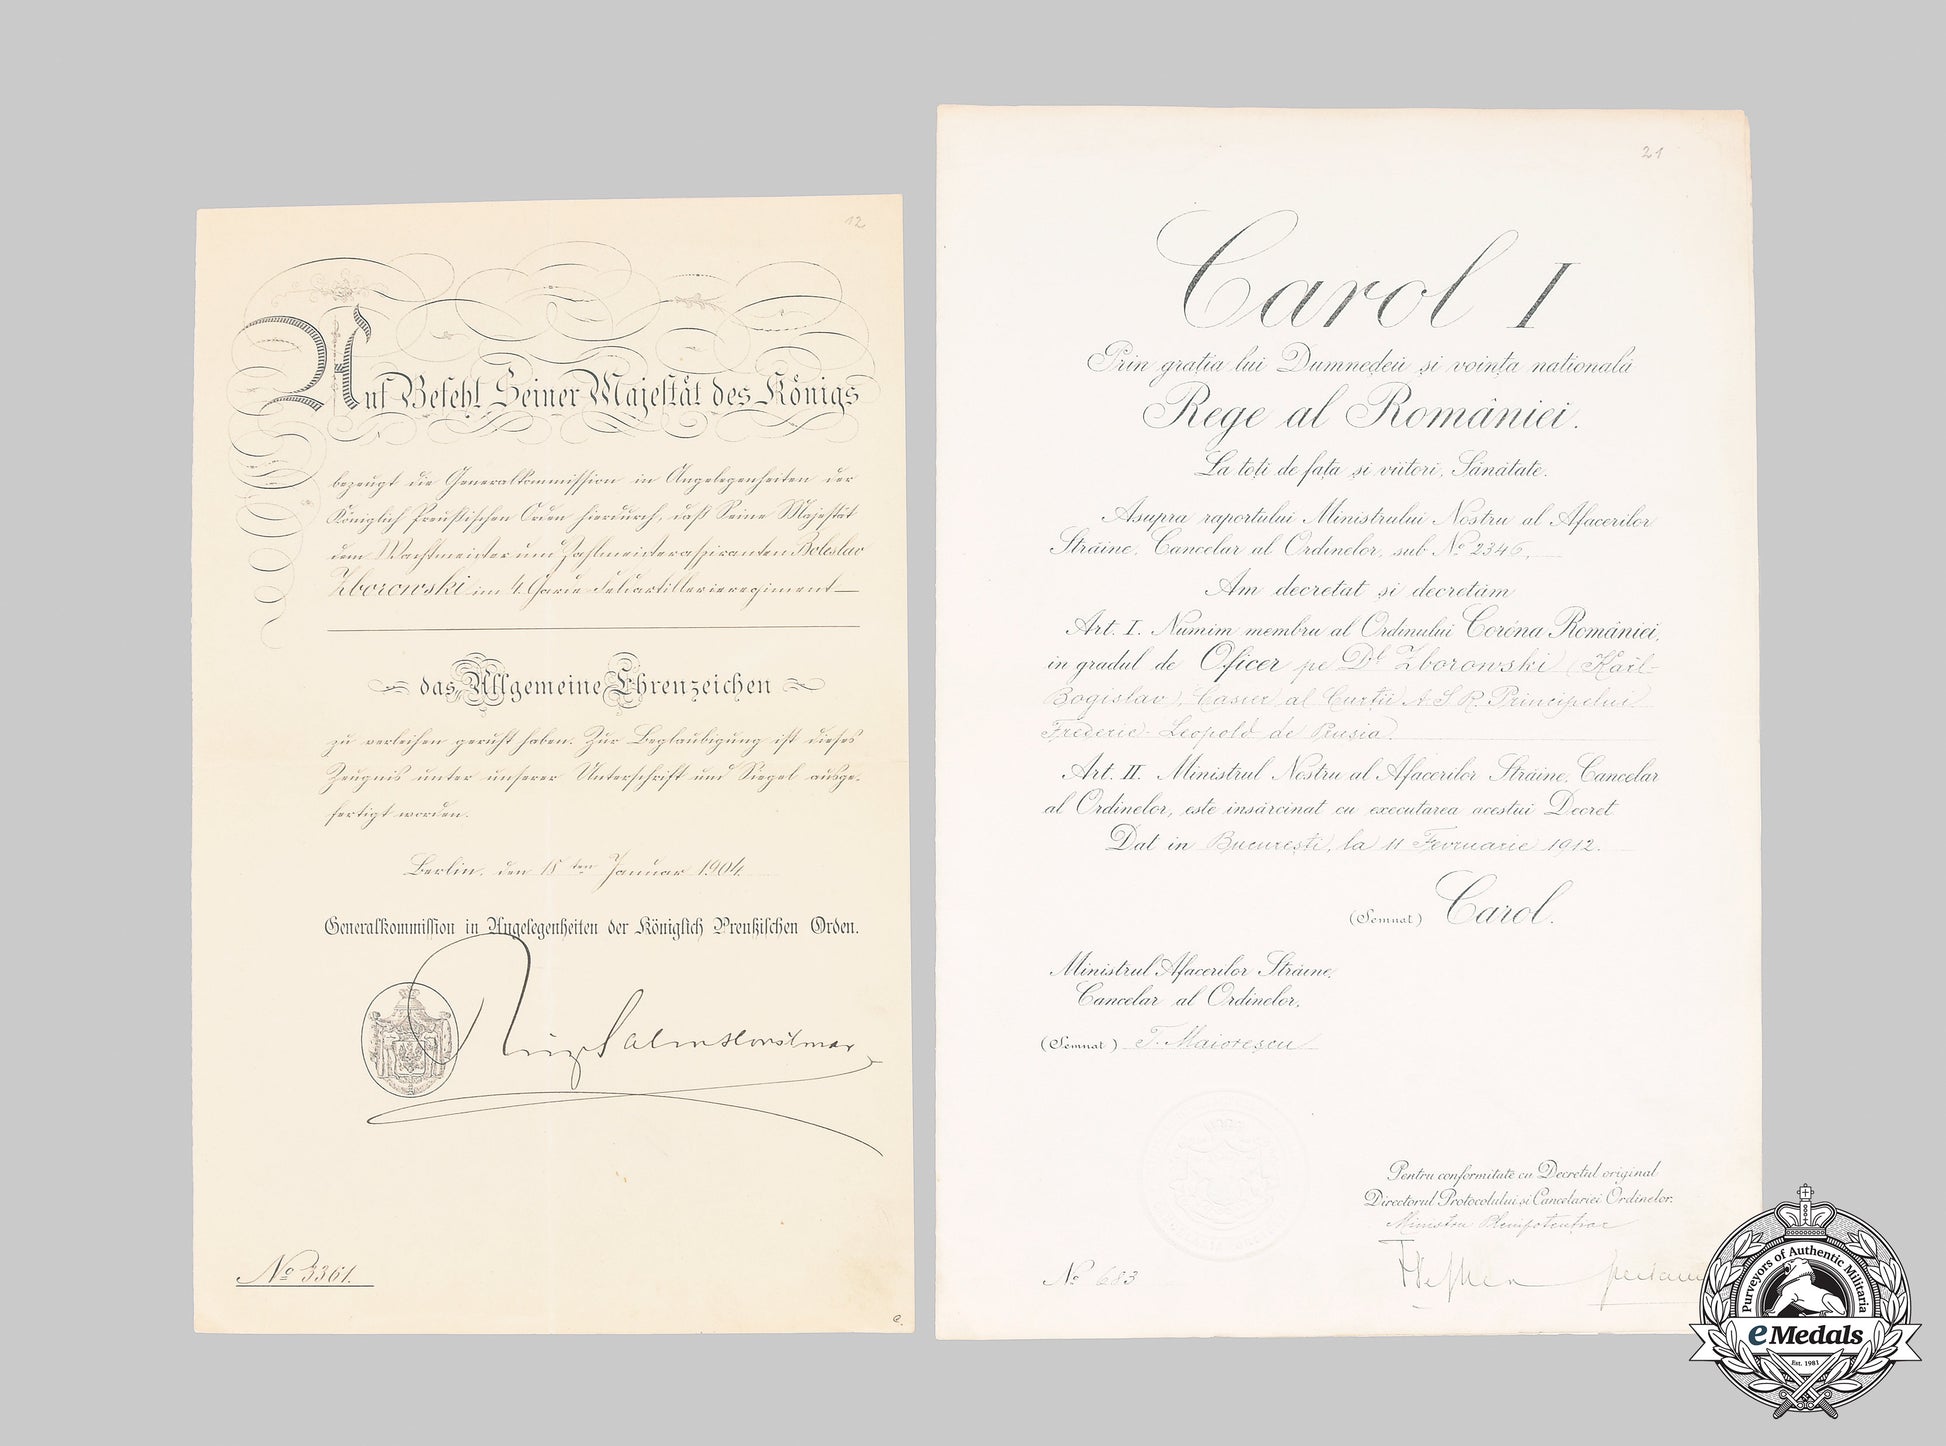 12
Auf Befehl Seiner Majestät des Königs
bezeugt die Generalkommission in Angelegenheiten der
Königlich Preußischen Orden hierdurch, daß Seine Majestät
dem Wachtmeister und Zahlmeisteraspiranten Boleslav
Zborowski im 4. Garde Feldartillerieregiment
das Allgemeine Ehrenzeichen
zu verleihen geruht haben. Zur Beglaubigung ist dieses
Zeugnis unter unserer Unterschrift und Siegel ausge-
fertigt worden.
Berlin, den 18ten Januar 1904.
Generalkommission in Angelegenheiten der Königlich Preußischen Orden.
No 3361.
e.
21
Carol I
Prin grația lui Dumnedeu și voința natională
Rege al României.
La toți de fața și viitori, Sănătate.
Asupra raportului Ministrului Nostru al Afacerilor
Străine, Cancelar al Ordinelor, sub No 2346,
Am decretat și decretăm
Art. I. Numim membru al Ordinului Coróna României,
in gradul de Oficer pe Dl Zborowski (Karl-
Bogislav), Casier al Curții A.S.R. Principelui
Frederic-Leopold de Prusia.
Art. II. Ministrul Nostru al Afacerilor Străine, Cancelar
al Ordinelor, este însărcinat cu executarea acestui Decret
Dat in București, la 11 Fevruarie 1912.
(Semnat) Carol.
Ministrul Afacerilor Străine,
Cancelar al Ordinelor,
(Semnat) T. Maiorescu
Pentru conformitate cu Decretul original
Directorul Protocolului și Cancelariei Ordinelor.
Ministru Plenipotențiar
No 683
Purveyors of Authentic Militaria
eMedals
Est. 1983